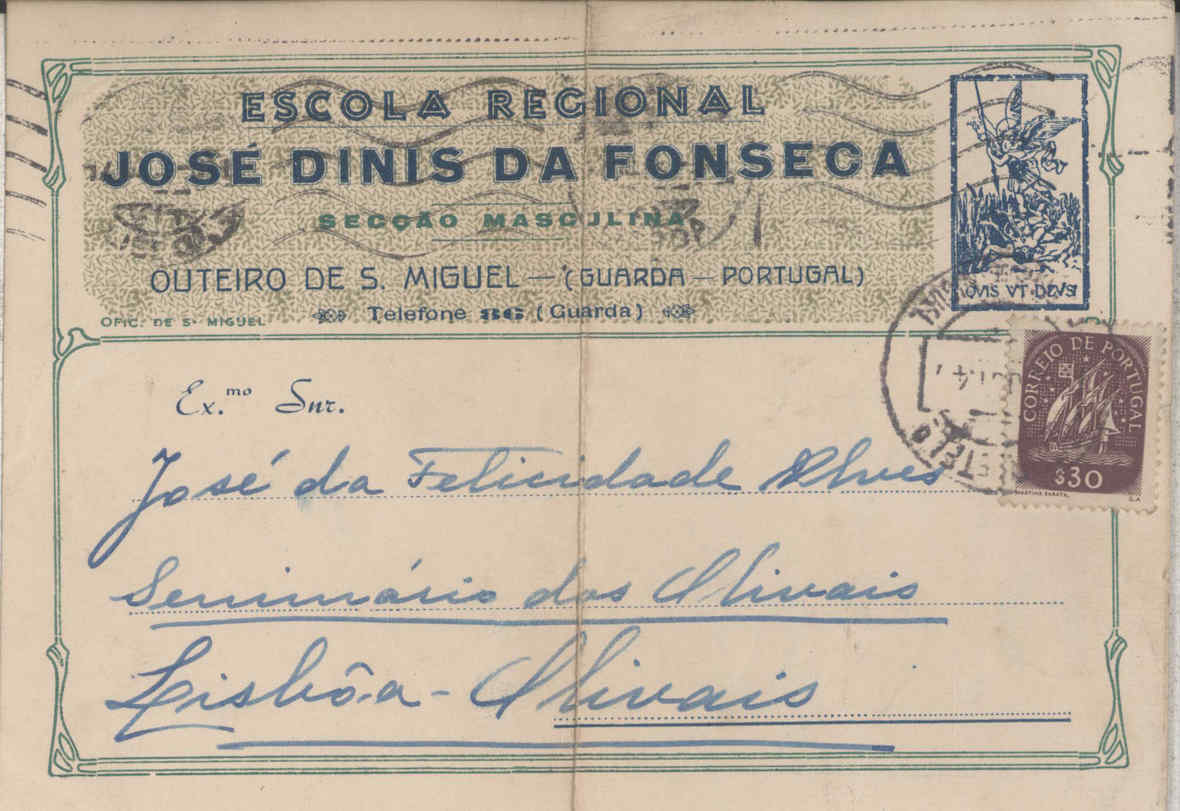 ESCOLA REGIONAL
JOSÉ DINIS DA FONSECA
SECÇÃO MASCULINA
OUTEIRO DE S. MIGUEL — (GUARDA — PORTUGAL)
OFIC. DE S. MIGUEL
Telefone 86 (Guarda)
QVIS VT DEVS
CORREIO DE PORTUGAL
$30
Ex.mo Snr.
José da Felicidade Alves
Seminário dos Olivais
Lisbôa - Olivais